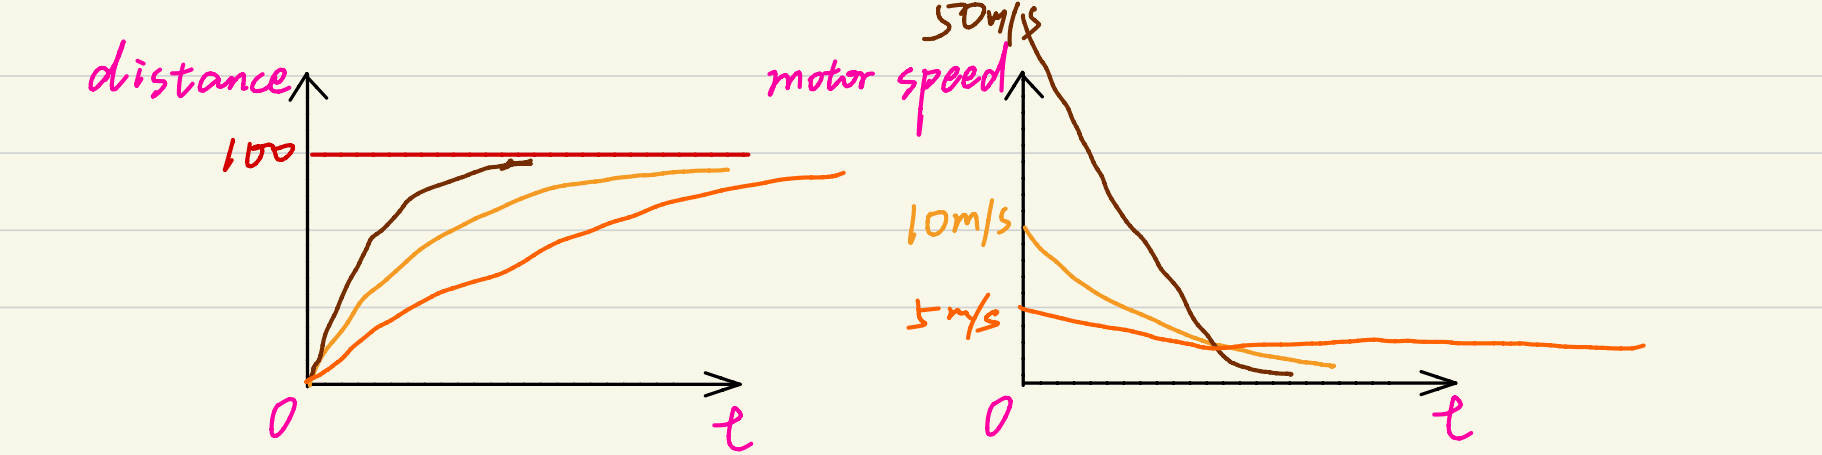 distance
100
0
t
50m/s
motor speed
10m/s
5m/s
0
t